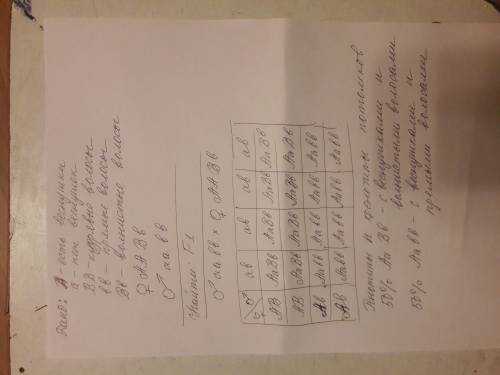 Дано: А - есть веснушки
а - нет веснушек
ВВ - кудрявые волосы
вв - прямые волосы
Вв - волнистые волосы
♀ ААВв
♂ аавв
Найти: F1
♂ аавв × ♀ ААВв
♀ ♂ ав ав ав ав
АВ АаВв АаВв АаВв АаВв
АВ АаВв АаВв АаВв АаВв
Ав Аавв Аавв Аавв Аавв
Ав Аавв Аавв Аавв Аавв
Генотипы и фенотипы потомков
50% АаВв - с веснушками и
волнистыми волосами
50% Аавв - с веснушками и
прямыми волосами